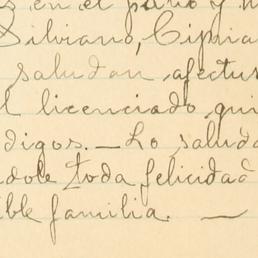 s en el patio y m
Silviano, Cipria
saludan afectus
l licenciado qui
digos. — Lo saluda
dole toda felicidad
ible familia. —